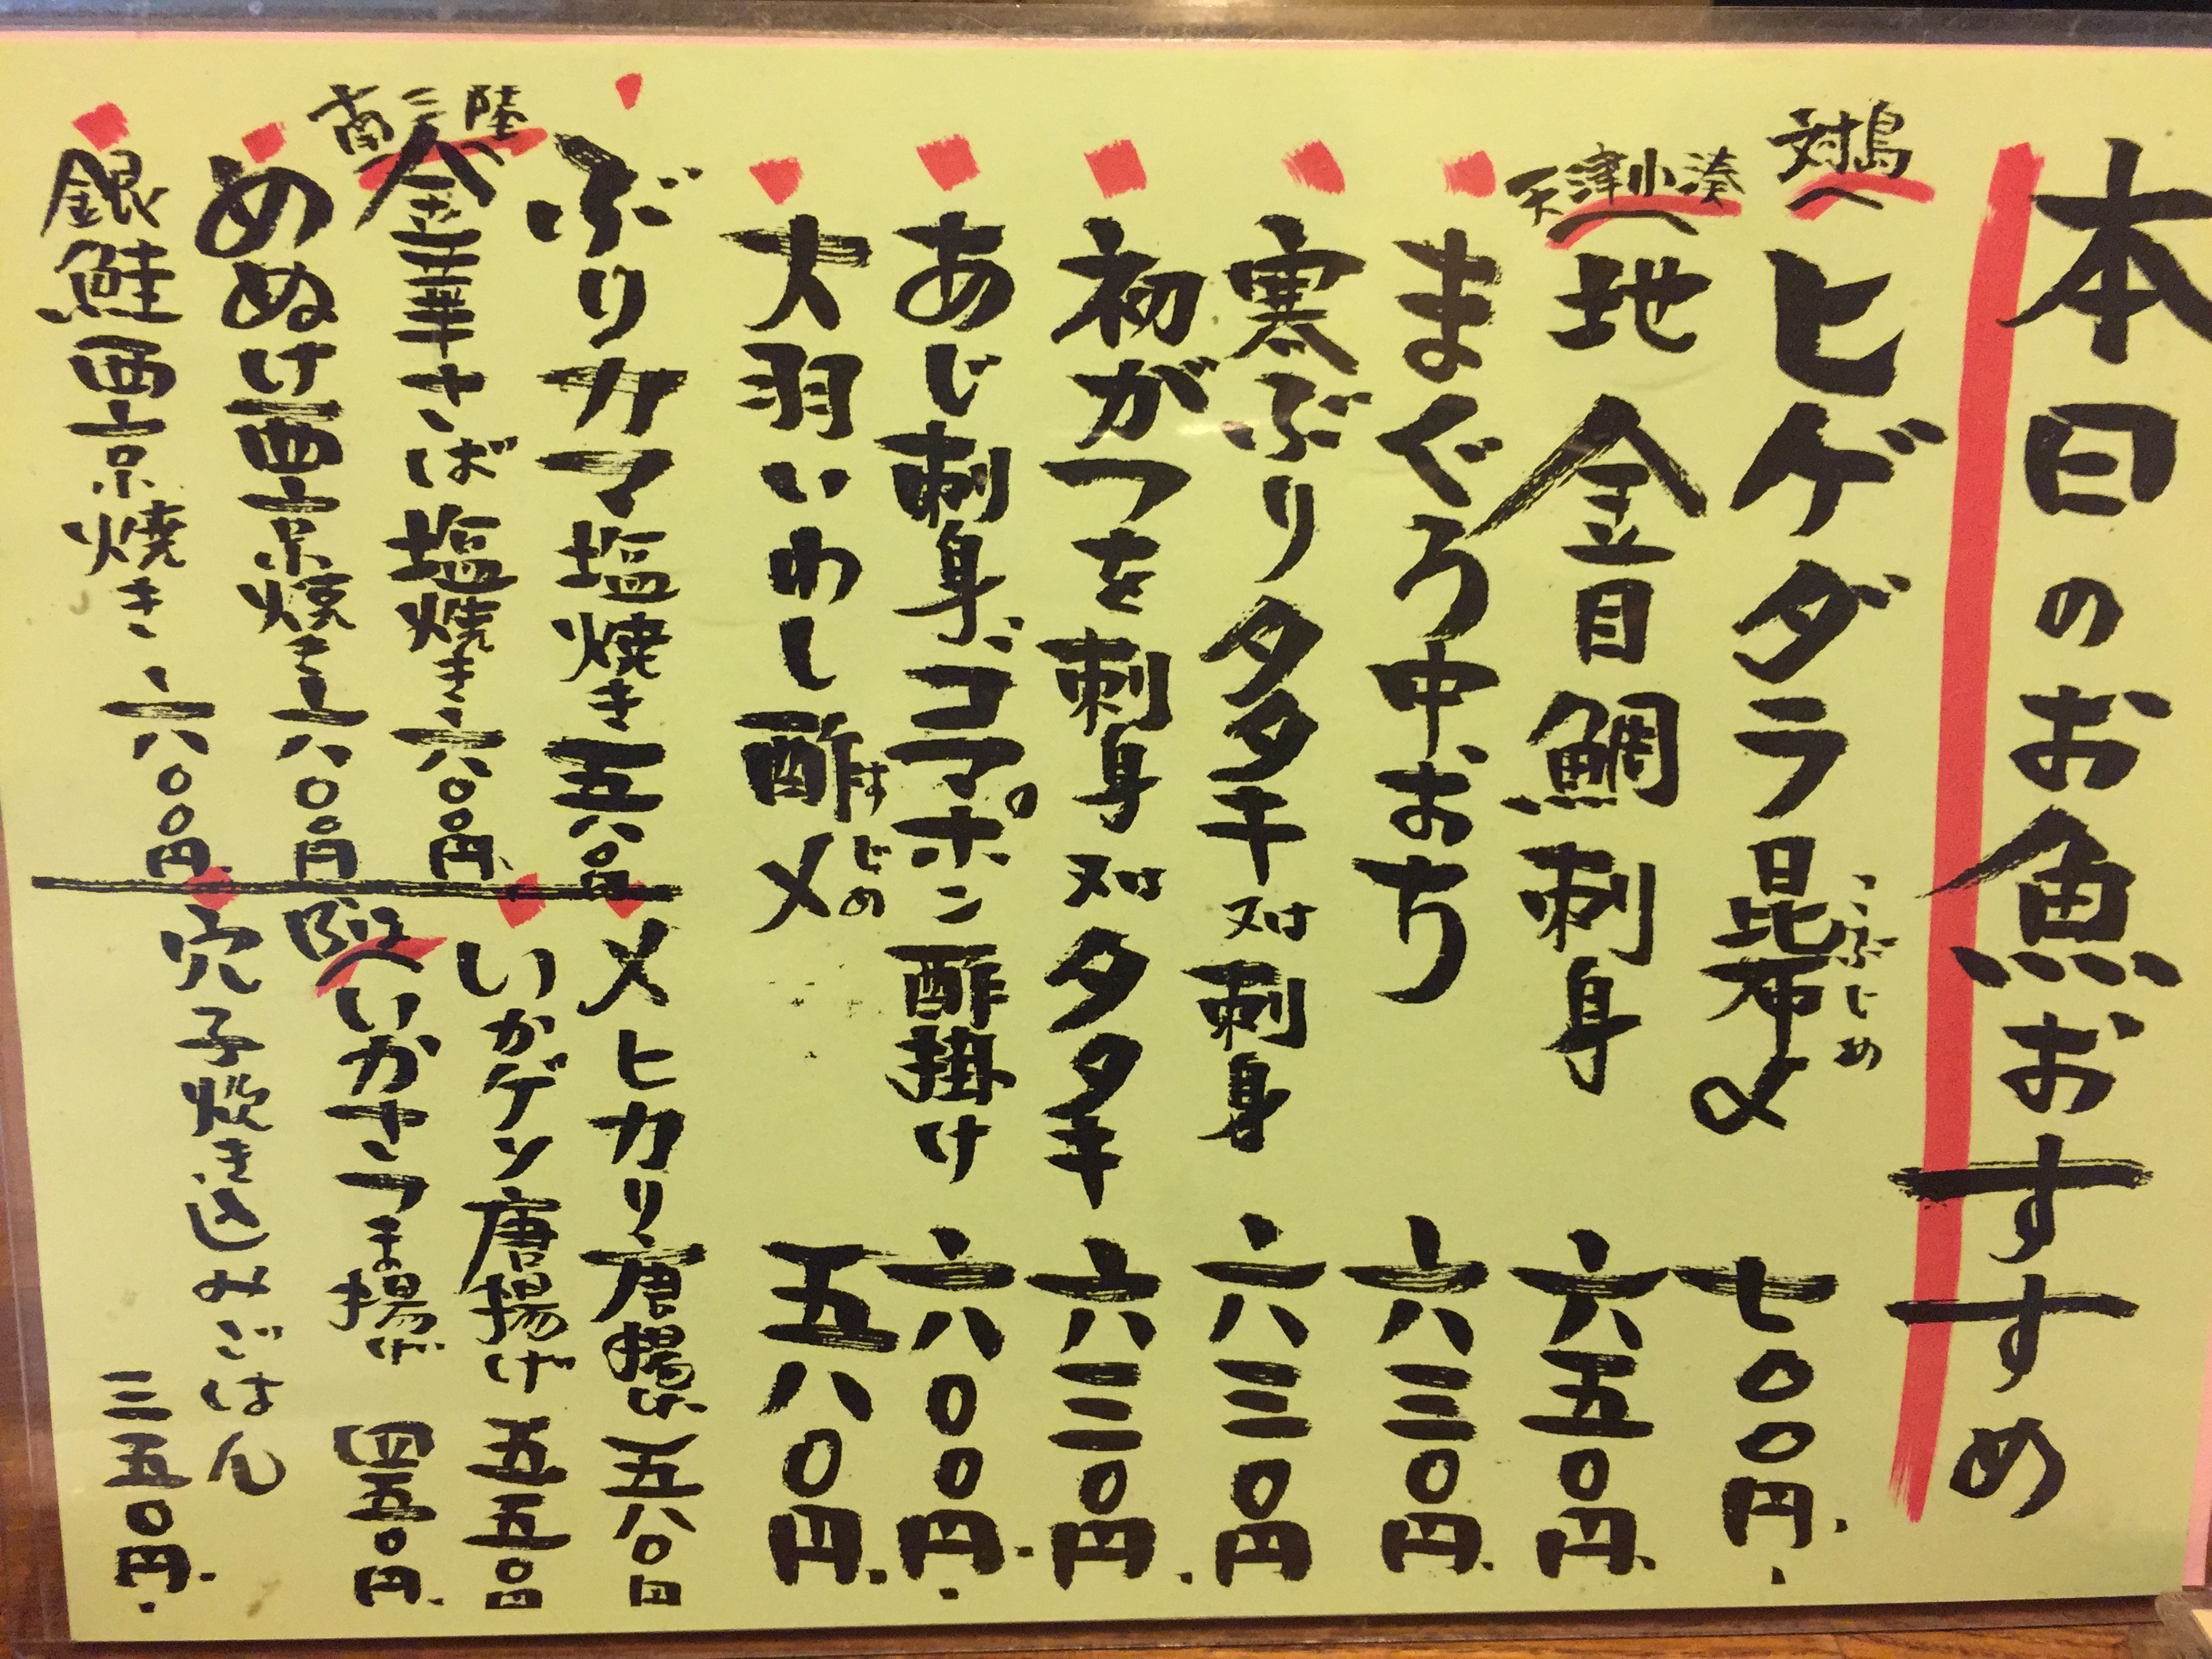 本日のお魚おすすめ
対島
ヒゲダラ昆布〆 七〇〇円
こぶじめ
天津小湊
地金目鯛刺身 六五〇円
まぐろ中おち 六三〇円
寒ぶりタタキ又は刺身 六三〇円
初がつを刺身又はタタキ 六三〇円
あじ刺身、ゴマポン酢掛け 六〇〇円
大羽いわし酢〆 五八〇円
すじめ
ぶりカマ塩焼き 五八〇円
南三陸
金華さば塩焼き 六八〇円
めぬけ西京焼き 六八〇円
銀鮭西京焼き 六八〇円
メヒカリ唐揚げ 五八〇円
いかゲソ唐揚げ 五五〇円
いかさつま揚げ 四五〇円
穴子炊き込みごはん
三五〇円